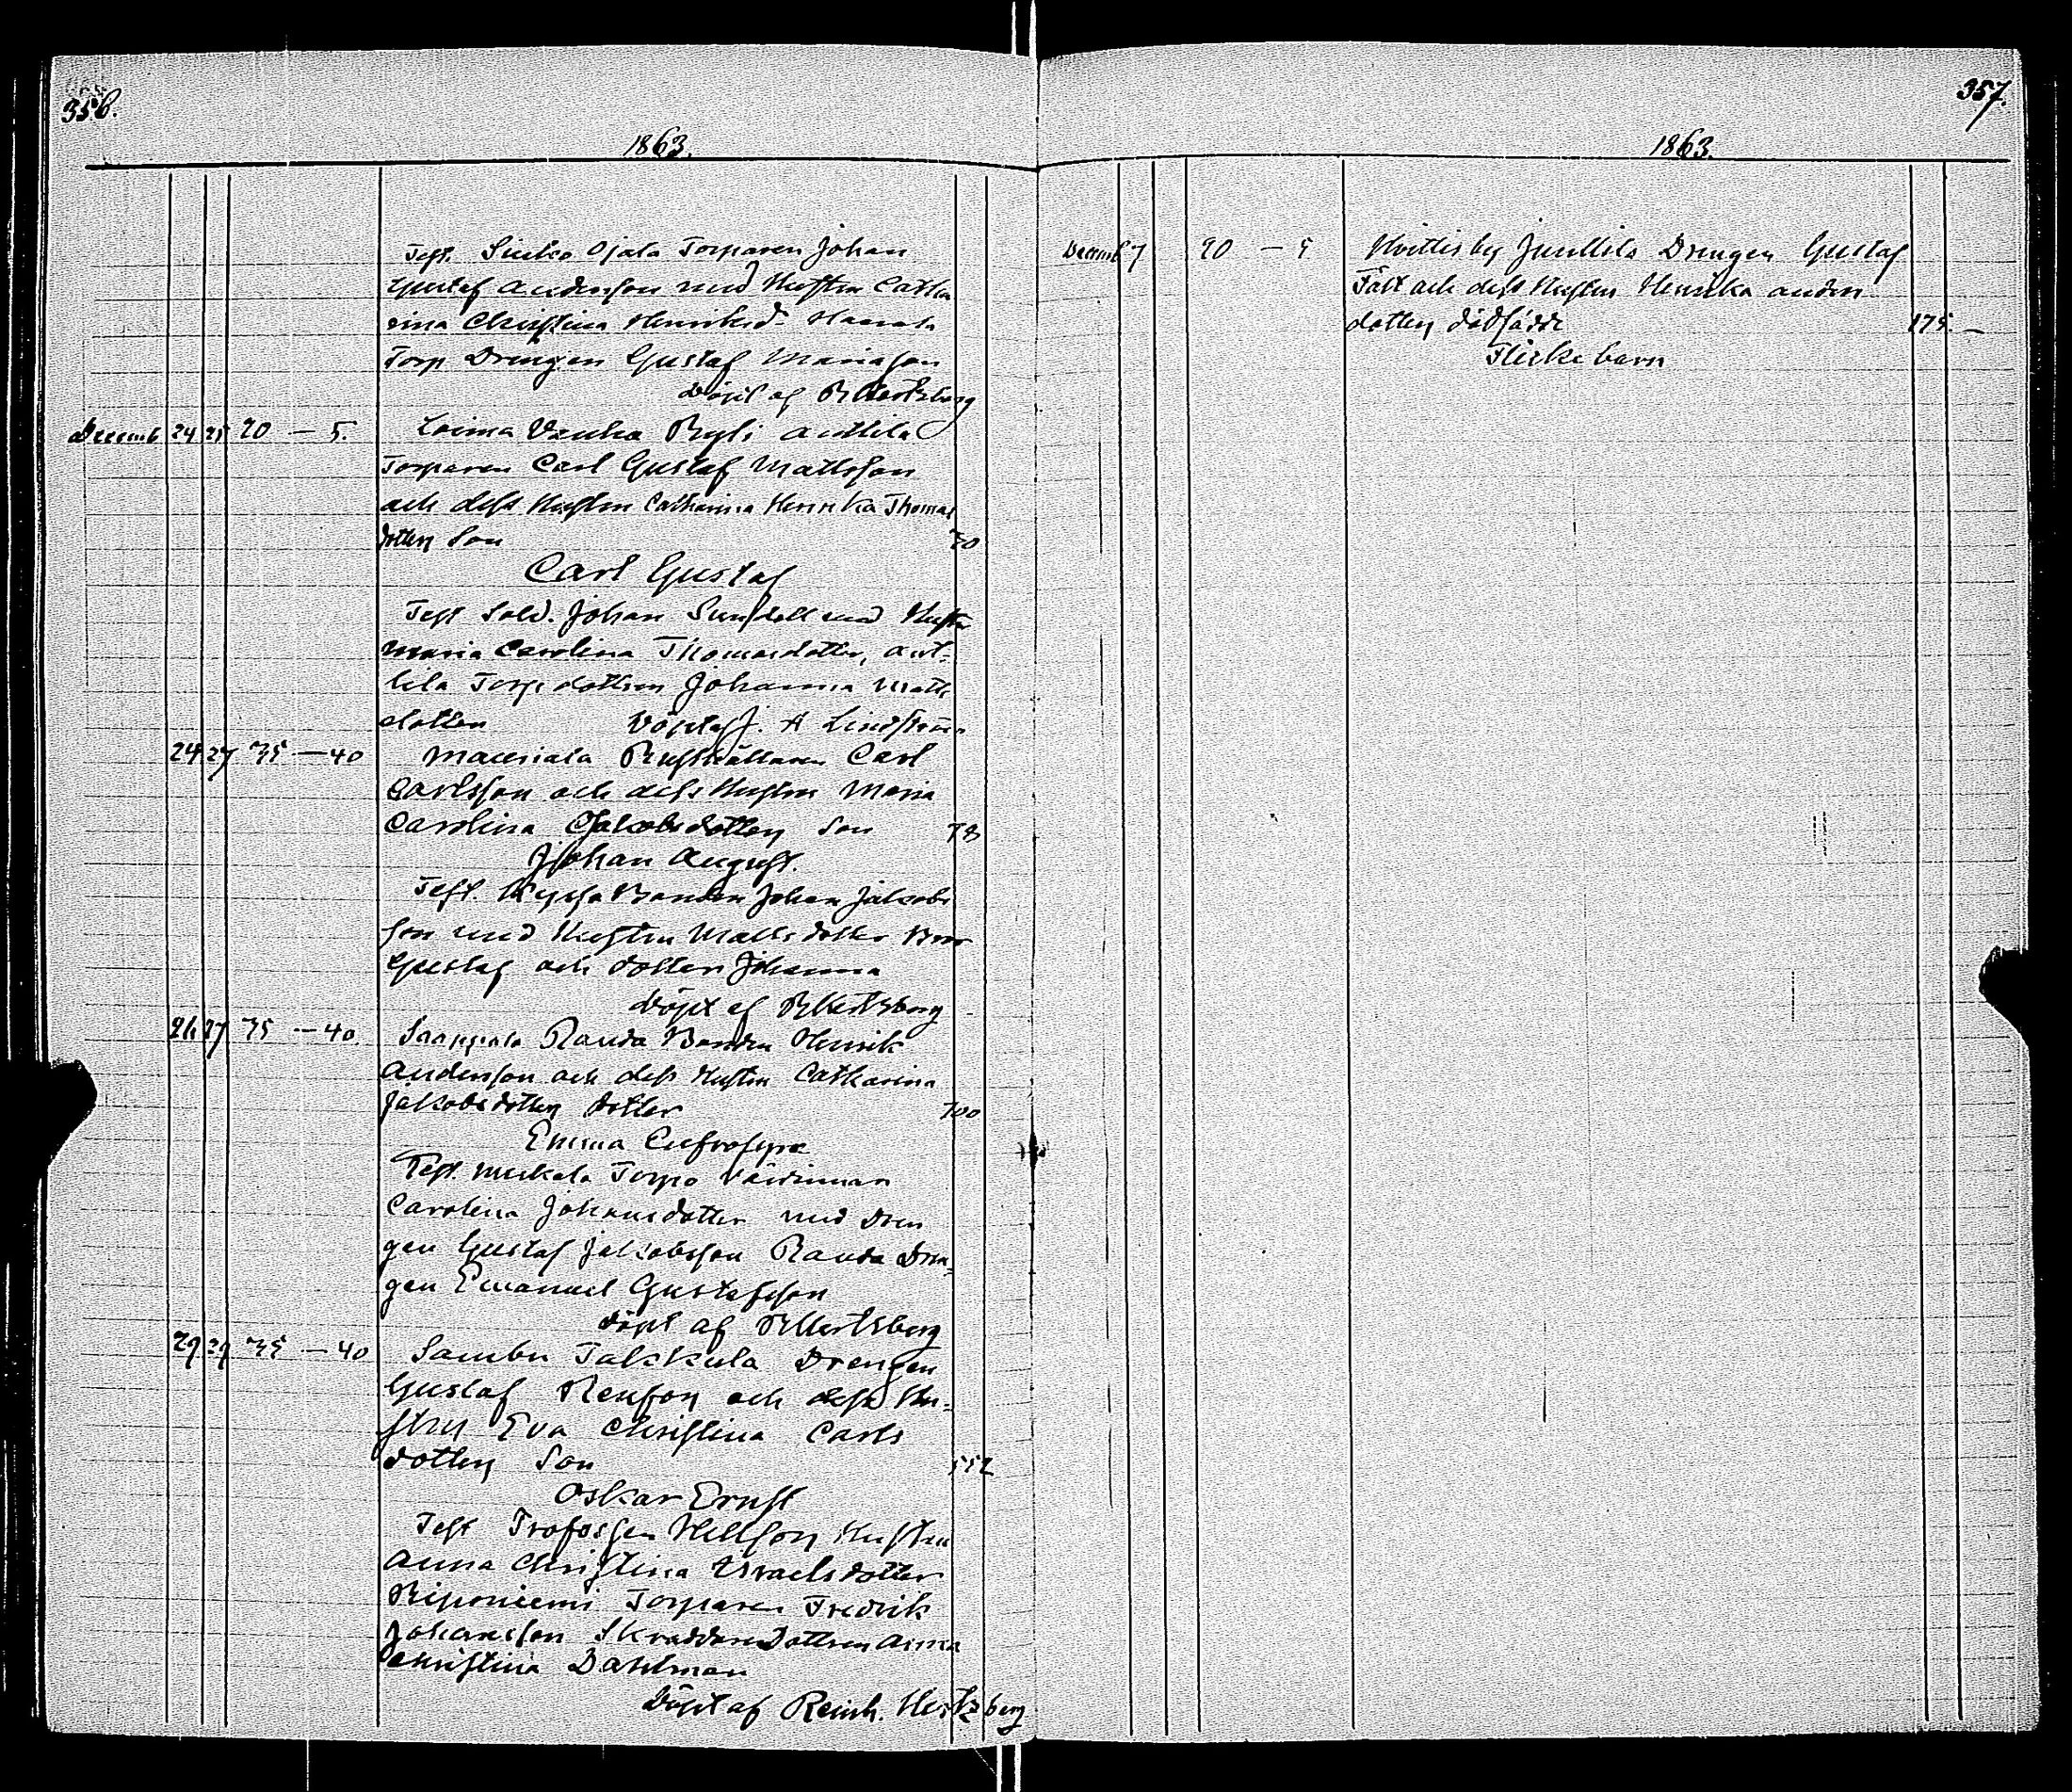 356.
1863.
Test. Ojala Torparen Johan
Gustaf Andersson med Hustrun Catha
rina Christina Henriksd.
Torp Drengen Gustaf Mariasson
Döpt af R Hertzberg
Decemb 24 25 20 — 5. Loima Vanha Kyli Anttila
Torparen Carl Gustaf Mattsson
och dess Hustru Catharina Henrika Thomas
dotters Son 30
Carl Gustaf
Test Sold. Johan med Hustru
Maria Carolina Thomasdotter, Ant-
tila Torp dottren Johanna Matts
dotter Döpt af J. A Lindström
24 27 35 — 40 Mauriala Rusthållaren Carl
Carlsson och dess Hustru Maria
Carolina Jakobsdotters Son 78
Johan August.
Test. Bonden Johan Jakobs
son med Hustru Mattsdotter Bror
Gustaf och dotter Johanna
Döpt af R Hertzberg
26 27 35 — 40. Randa Bonden Henrik
Andersson och dess Hustru Catharina
Jakobsdotters dotter 700
Emma Eufrosyne
Test. Torpo Värdinnan
Carolina Johansdotter med Dren
gen Gustaf Jakobsson Randa Dren-
gen Emanuel Gustafsson
döpt af R Hertzberg
29 29 35 — 40 Sambu Talkkula Drengen
Gustaf och dess Hu-
stru Eva Christina Carls
dotters Son 552
Oskar Ernst
Test Profossen Hellson Hustru
Anna Christina Israelsdotter
Riponiemi Torparen Fredrik
Johansson Skraddare Dottren Anna
Christina Dahlman
Döpt af Reinh. Hertzberg
357.
1863.
Decemb 7 20 — 5 Hvittis by Junttila Drengen Gustaf
Fält och dess Hustru Henrika Anders
dotters dödfödde 175. —
Flickebarn